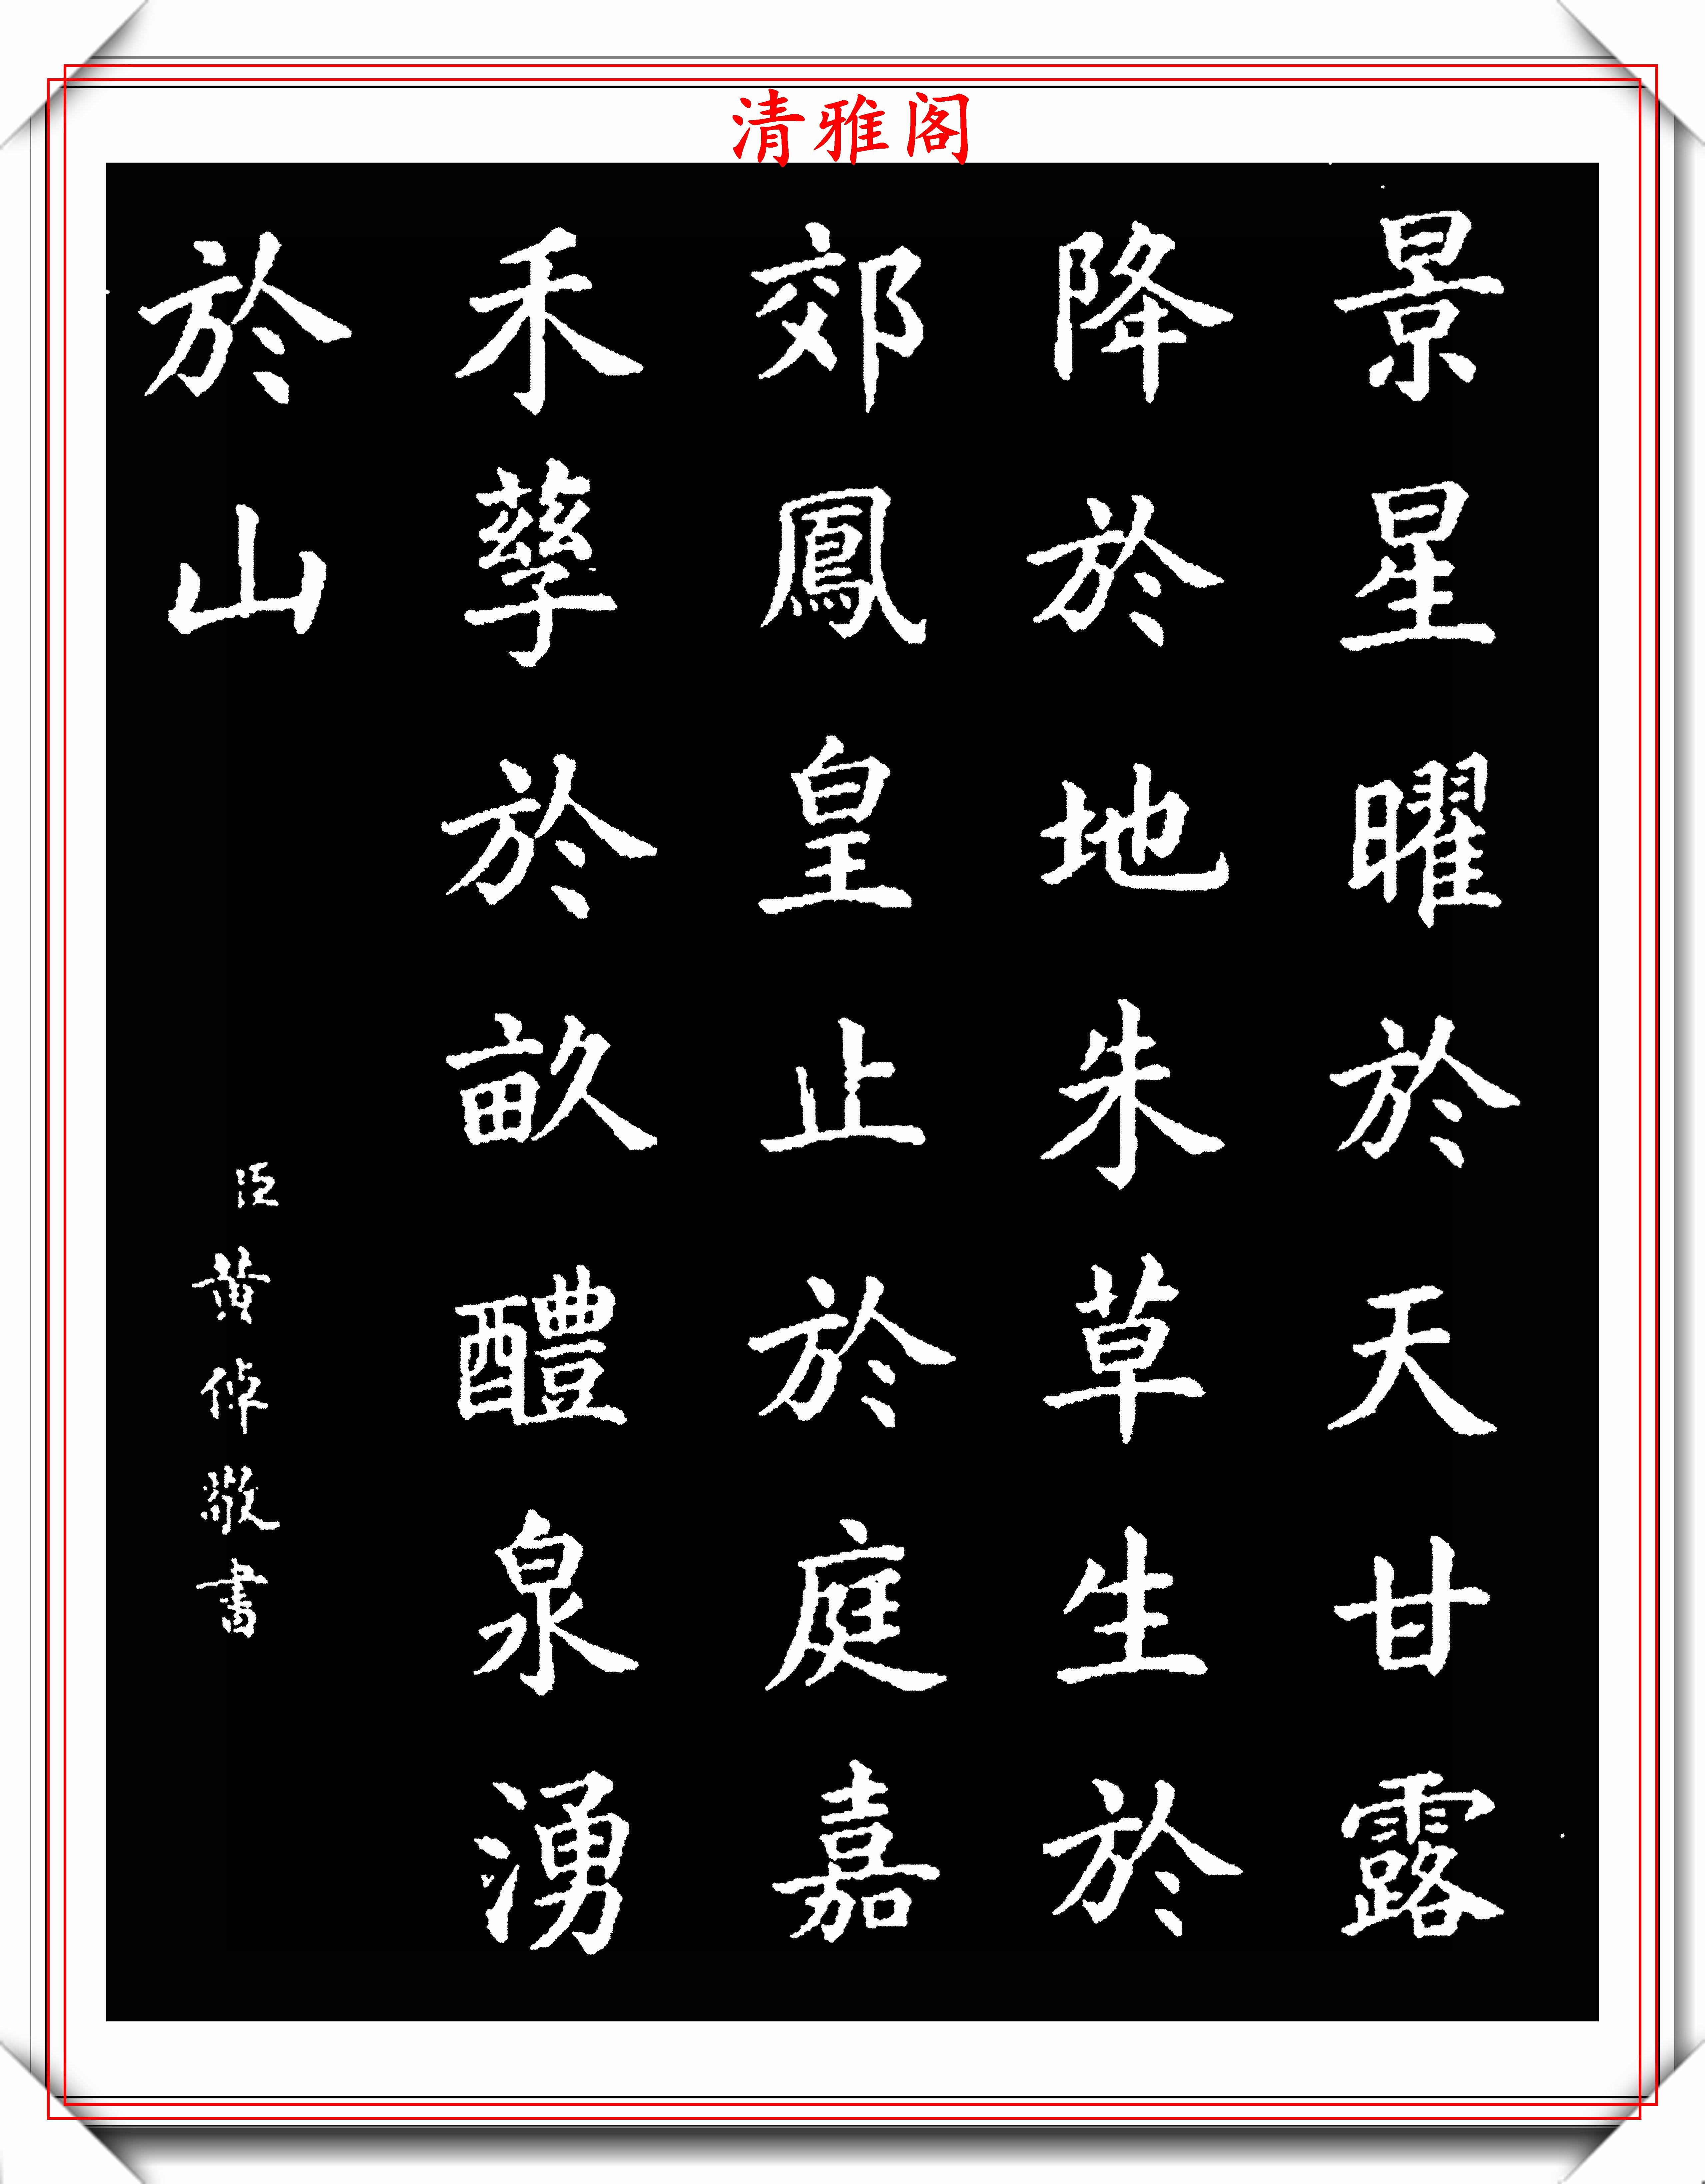 清雅阁
景星曜於天甘露
降於地朱草生於
郊鳳皇止於庭嘉
禾孳於畝醴泉湧
於山
臣黄倬敬書